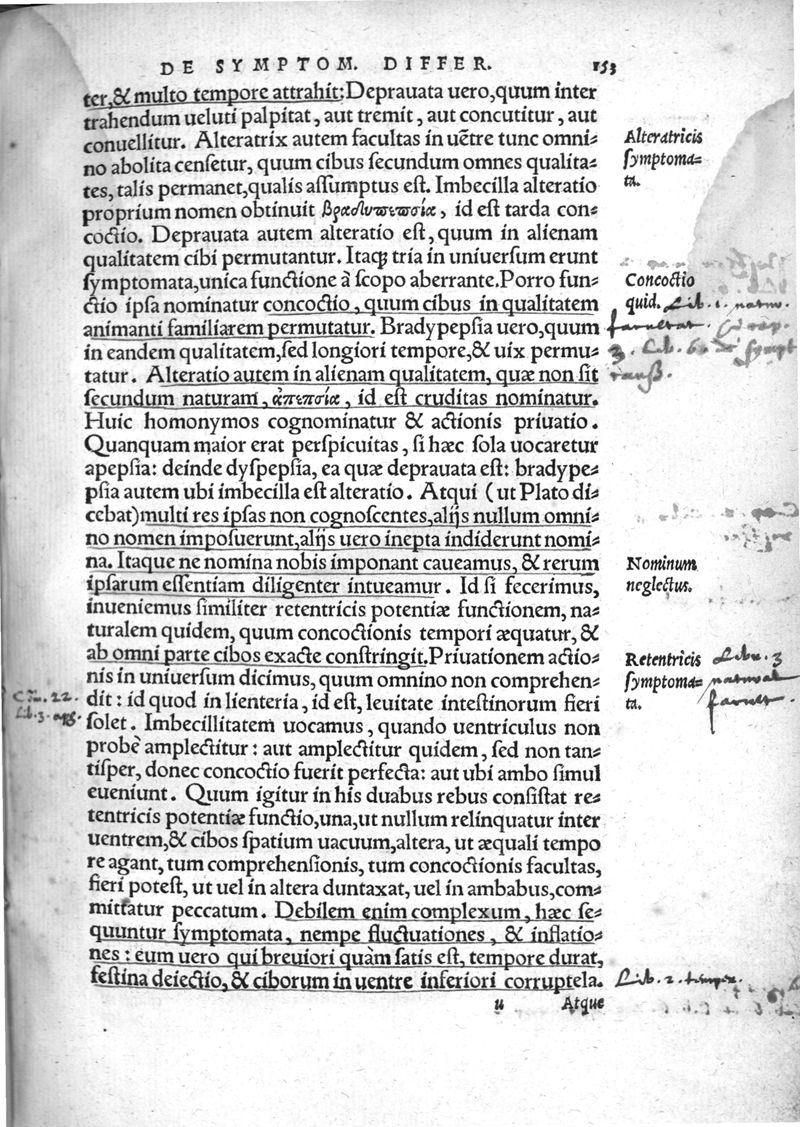 DE SYMPTOM. DIFFER. 153
ter,& multo tempore attrahit: Deprauata uero,quum inter
trahendum ueluti palpitat, aut tremit, aut concutitur, aut
conuellitur. Alteratrix autem facultas in uẽtre tunc omni-
no abolita censetur, quum cibus secundum omnes qualita-
tes, talis permanet,qualis assumptus est. Imbecilla alteratio
proprium nomen obtinuit βραδυπεψία, id est tarda con-
coctio. Deprauata autem alteratio est, quum in alienam
qualitatem cibi permutantur. Itaq; tria in uniuersum erunt
symptomata,unica functione à scopo aberrante.Porro fun-
ctio ipsa nominatur concoctio, quum cibus in qualitatem
animanti familiarem permutatur. Bradypepsia uero,quum
in eandem qualitatem,sed longiori tempore,& uix permu-
tatur. Alteratio autem in alienam qualitatem, quæ non sit
secundum naturam, ἀπεψία, id est cruditas nominatur.
Huic homonymos cognominatur & actionis priuatio.
Quanquam maior erat perspicuitas, si hæc sola uocaretur
apepsia: deinde dyspepsia, ea quæ deprauata est: bradype-
psia autem ubi imbecilla est alteratio. Atqui (ut Plato di-
cebat)multi res ipsas non cognoscentes,alijs nullum omni-
no nomen imposuerunt,alijs uero inepta indiderunt nomi-
na. Itaque ne nomina nobis imponant caueamus, & rerum
ipsarum essentiam diligenter intueamur. Id si fecerimus,
inueniemus similiter retentricis potentiæ functionem, na-
turalem quidem, quum concoctionis tempori æquatur, &
ab omni parte cibos exacte constringit.Priuationem actio-
nis in uniuersum dicimus, quum omnino non comprehen-
dit: id quod in lienteria, id est, leuitate intestinorum fieri
solet. Imbecillitatem uocamus, quando uentriculus non
probè amplectitur: aut amplectitur quidem, sed non tan-
tisper, donec concoctio fuerit perfecta: aut ubi ambo simul
eueniunt. Quum igitur in his duabus rebus consistat re-
tentricis potentiæ functio,una,ut nullum relinquatur inter
uentrem,& cibos spatium uacuum,altera, ut æquali tempo
re agant, tum comprehensionis, tum concoctionis facultas,
fieri potest, ut uel in altera duntaxat, uel in ambabus,com-
mittatur peccatum. Debilem enim complexum, hæc se-
quuntur symptomata, nempe fluctuationes, & inflatio-
nes: eum uero qui breuiori quàm satis est, tempore durat,
festina deiectio, & ciborum in uentre inferiori corruptela.
u Atque
Alteratricis
symptoma-
ta.
Concoctio
quid. Lib. 1. natur.
facultat.
3. Lib. 6. de sympt
Nominum
neglectus.
Retentricis Libr. 3
symptoma- natural
ta. facult.
22.
Lib. 3.
Lib. 2.